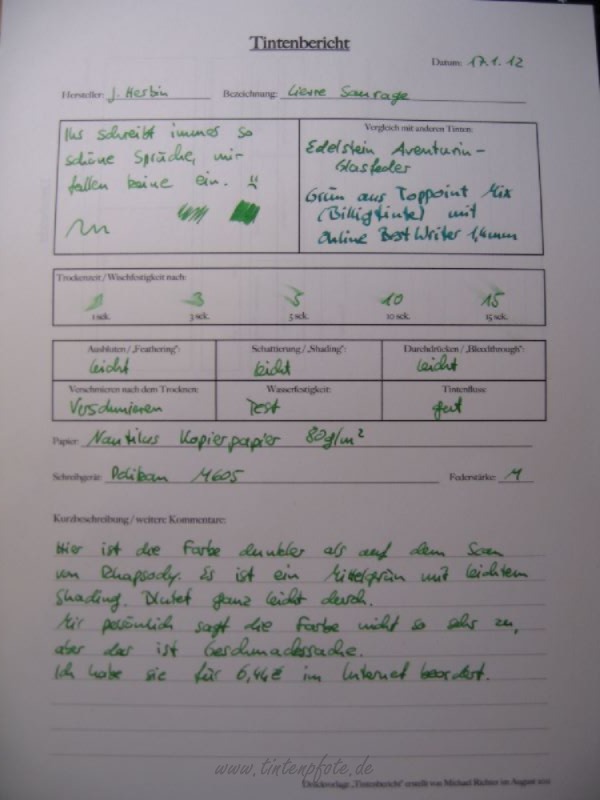 Tintenbericht
Datum: 17.1.12
Hersteller: J. Herbin Bezeichnung: Lierre Sauvage
Ihr schreibt immer so
schöne Sprüche, mir
fallen keine ein.
Vergleich mit anderen Tinten:
Edelstein Aventurin -
Glasfeder
Grün aus Toppoint Mix
(Billigtinte) mit
Online Best Writer 1,4mm
Trockenzeit / Wischfestigkeit nach:
1 3 5 10 15
1 sek. 3 sek. 5 sek. 10 sek. 15 sek.
Ausbluten / „Feathering": Schattierung / „Shading": Durchdrücken / „Bleedthrough":
leicht leicht leicht
Verschmieren nach dem Trocknen: Wasserfestigkeit: Tintenfluss:
Verschmieren Test gut
Papier: Nautilus Kopierpapier 80g/m²
Schreibgerät: Pelikan M605 Federstärke: M
Kurzbeschreibung / weitere Kommentare:
Hier ist die Farbe dunkler als auf dem Scan
von Rhapsody. Es ist ein Mittelgrün mit leichtem
Shading. Blutet ganz leicht durch.
Mir persönlich sagt die Farbe nicht so sehr zu,
aber das ist Geschmackssache.
Ich habe sie für 6,44€ im Internet beordert.
www.tintenpfote.de
Druckvorlage „Tintenbericht" erstellt von Michael Richter im August 2011